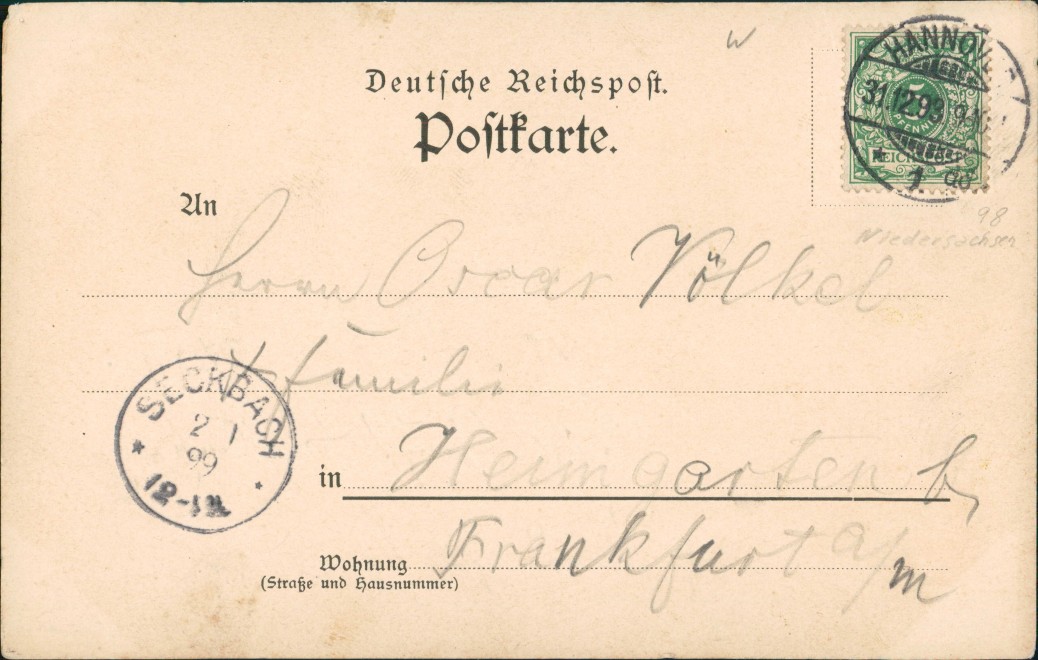 w
Deutsche Reichspost.
Postkarte.
HANNOVER
31.12.98 9-10
1. ad
5
PFENNIG
REICHSPOST
98
Niedersachsen
An
Herrn Oscar Völkel
& Familie
SECKBACH
2 1
99
12-1N.
in Heimgarten b/
Frankfurt a/m
Wohnung
(Straße und Hausnummer)